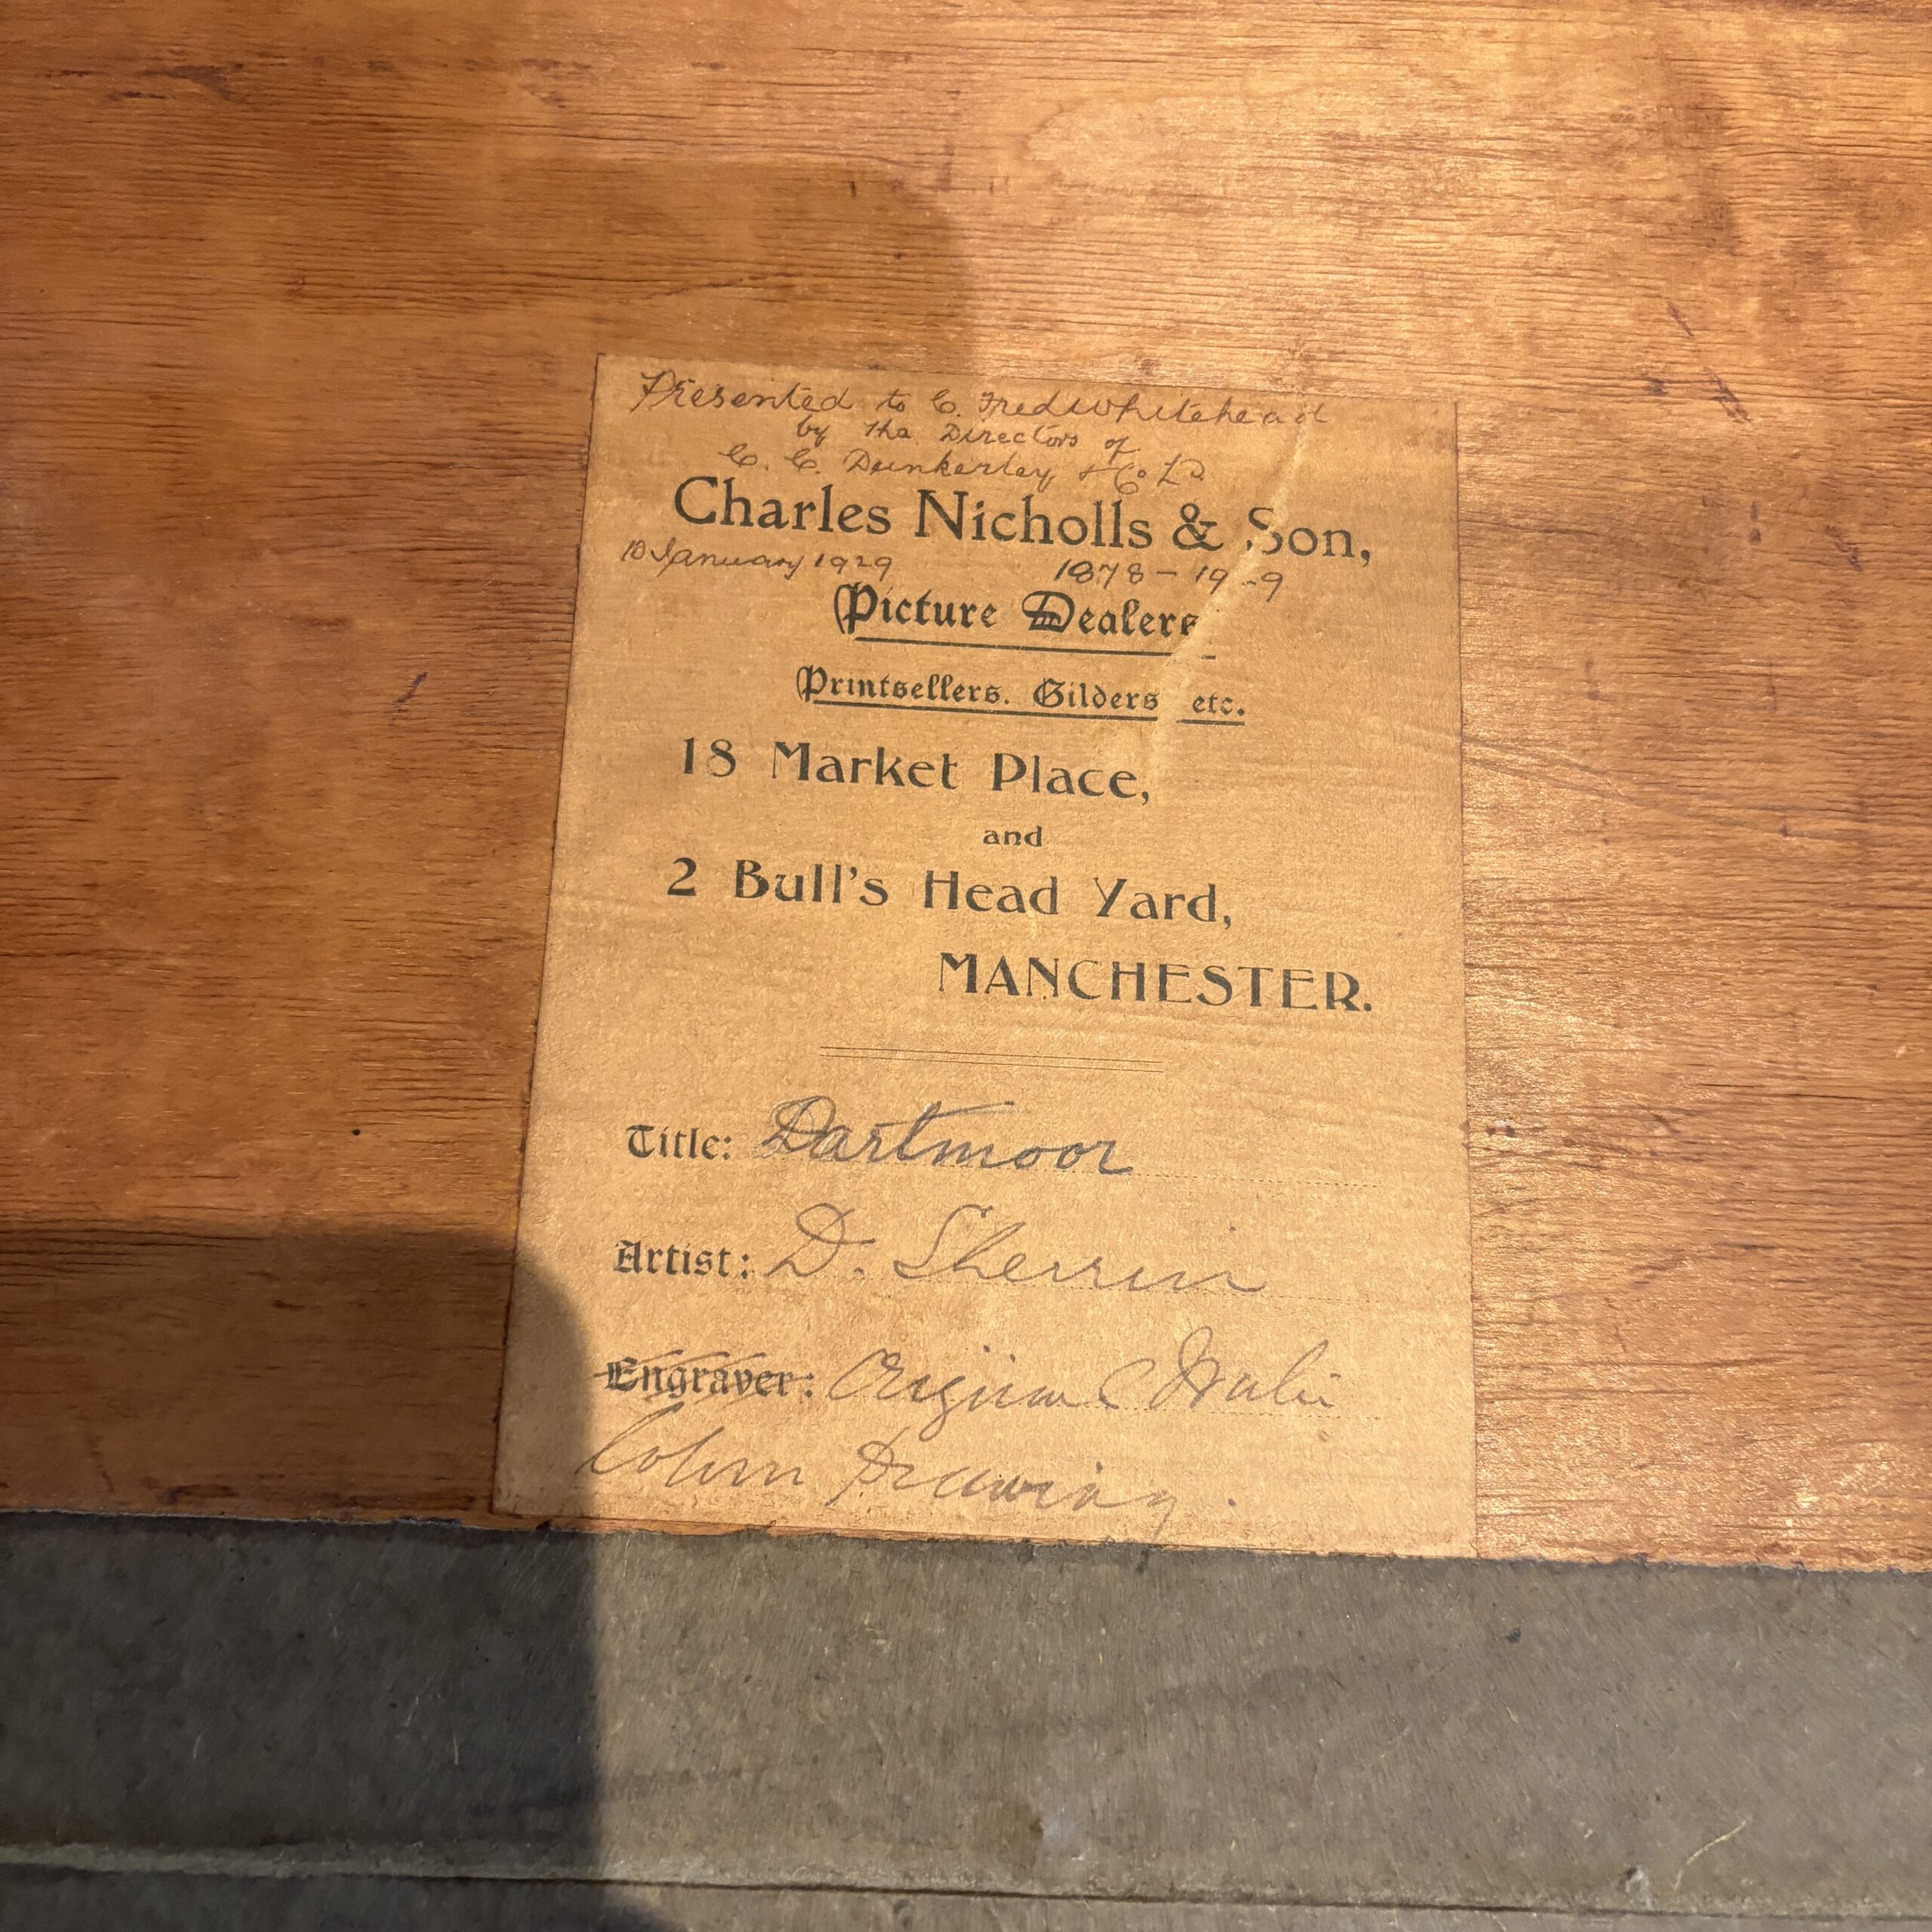 Presented to C. Fred Whitehead
by the Directors of
C. C. Dunkerley & Co Ld
Charles Nicholls & Son,
10 January 1929 1878 - 19 9
Picture Dealers
Printsellers. Gilders etc.
18 Market Place,
and
2 Bull's Head Yard,
MANCHESTER.
Title: Dartmoor
Artist: D. Sherrin
Engraver: Original Water
Colour Drawing.